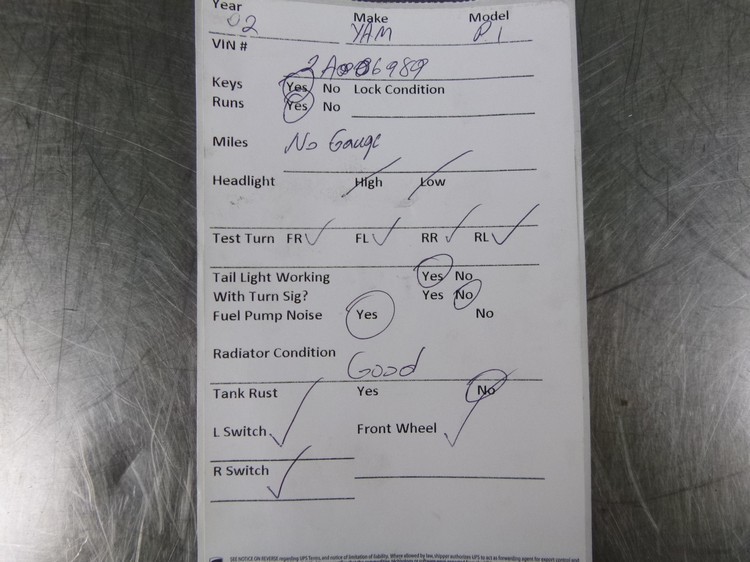 Year Make Model
02 YAM R1
VIN #
2A006989
Keys Yes No Lock Condition
Runs Yes No
Miles No Gauge
Headlight High Low
Test Turn FR ✓ FL ✓ RR ✓ RL ✓
Tail Light Working Yes No
With Turn Sig? Yes No
Fuel Pump Noise Yes No
Radiator Condition Good
Tank Rust Yes No
L Switch ✓ Front Wheel ✓
R Switch ✓
SEE NOTICE ON REVERSE regarding UPS Terms, and notice of limitation of liability. Where allowed by law, shipper authorizes UPS to act as forwarding agent for export control and